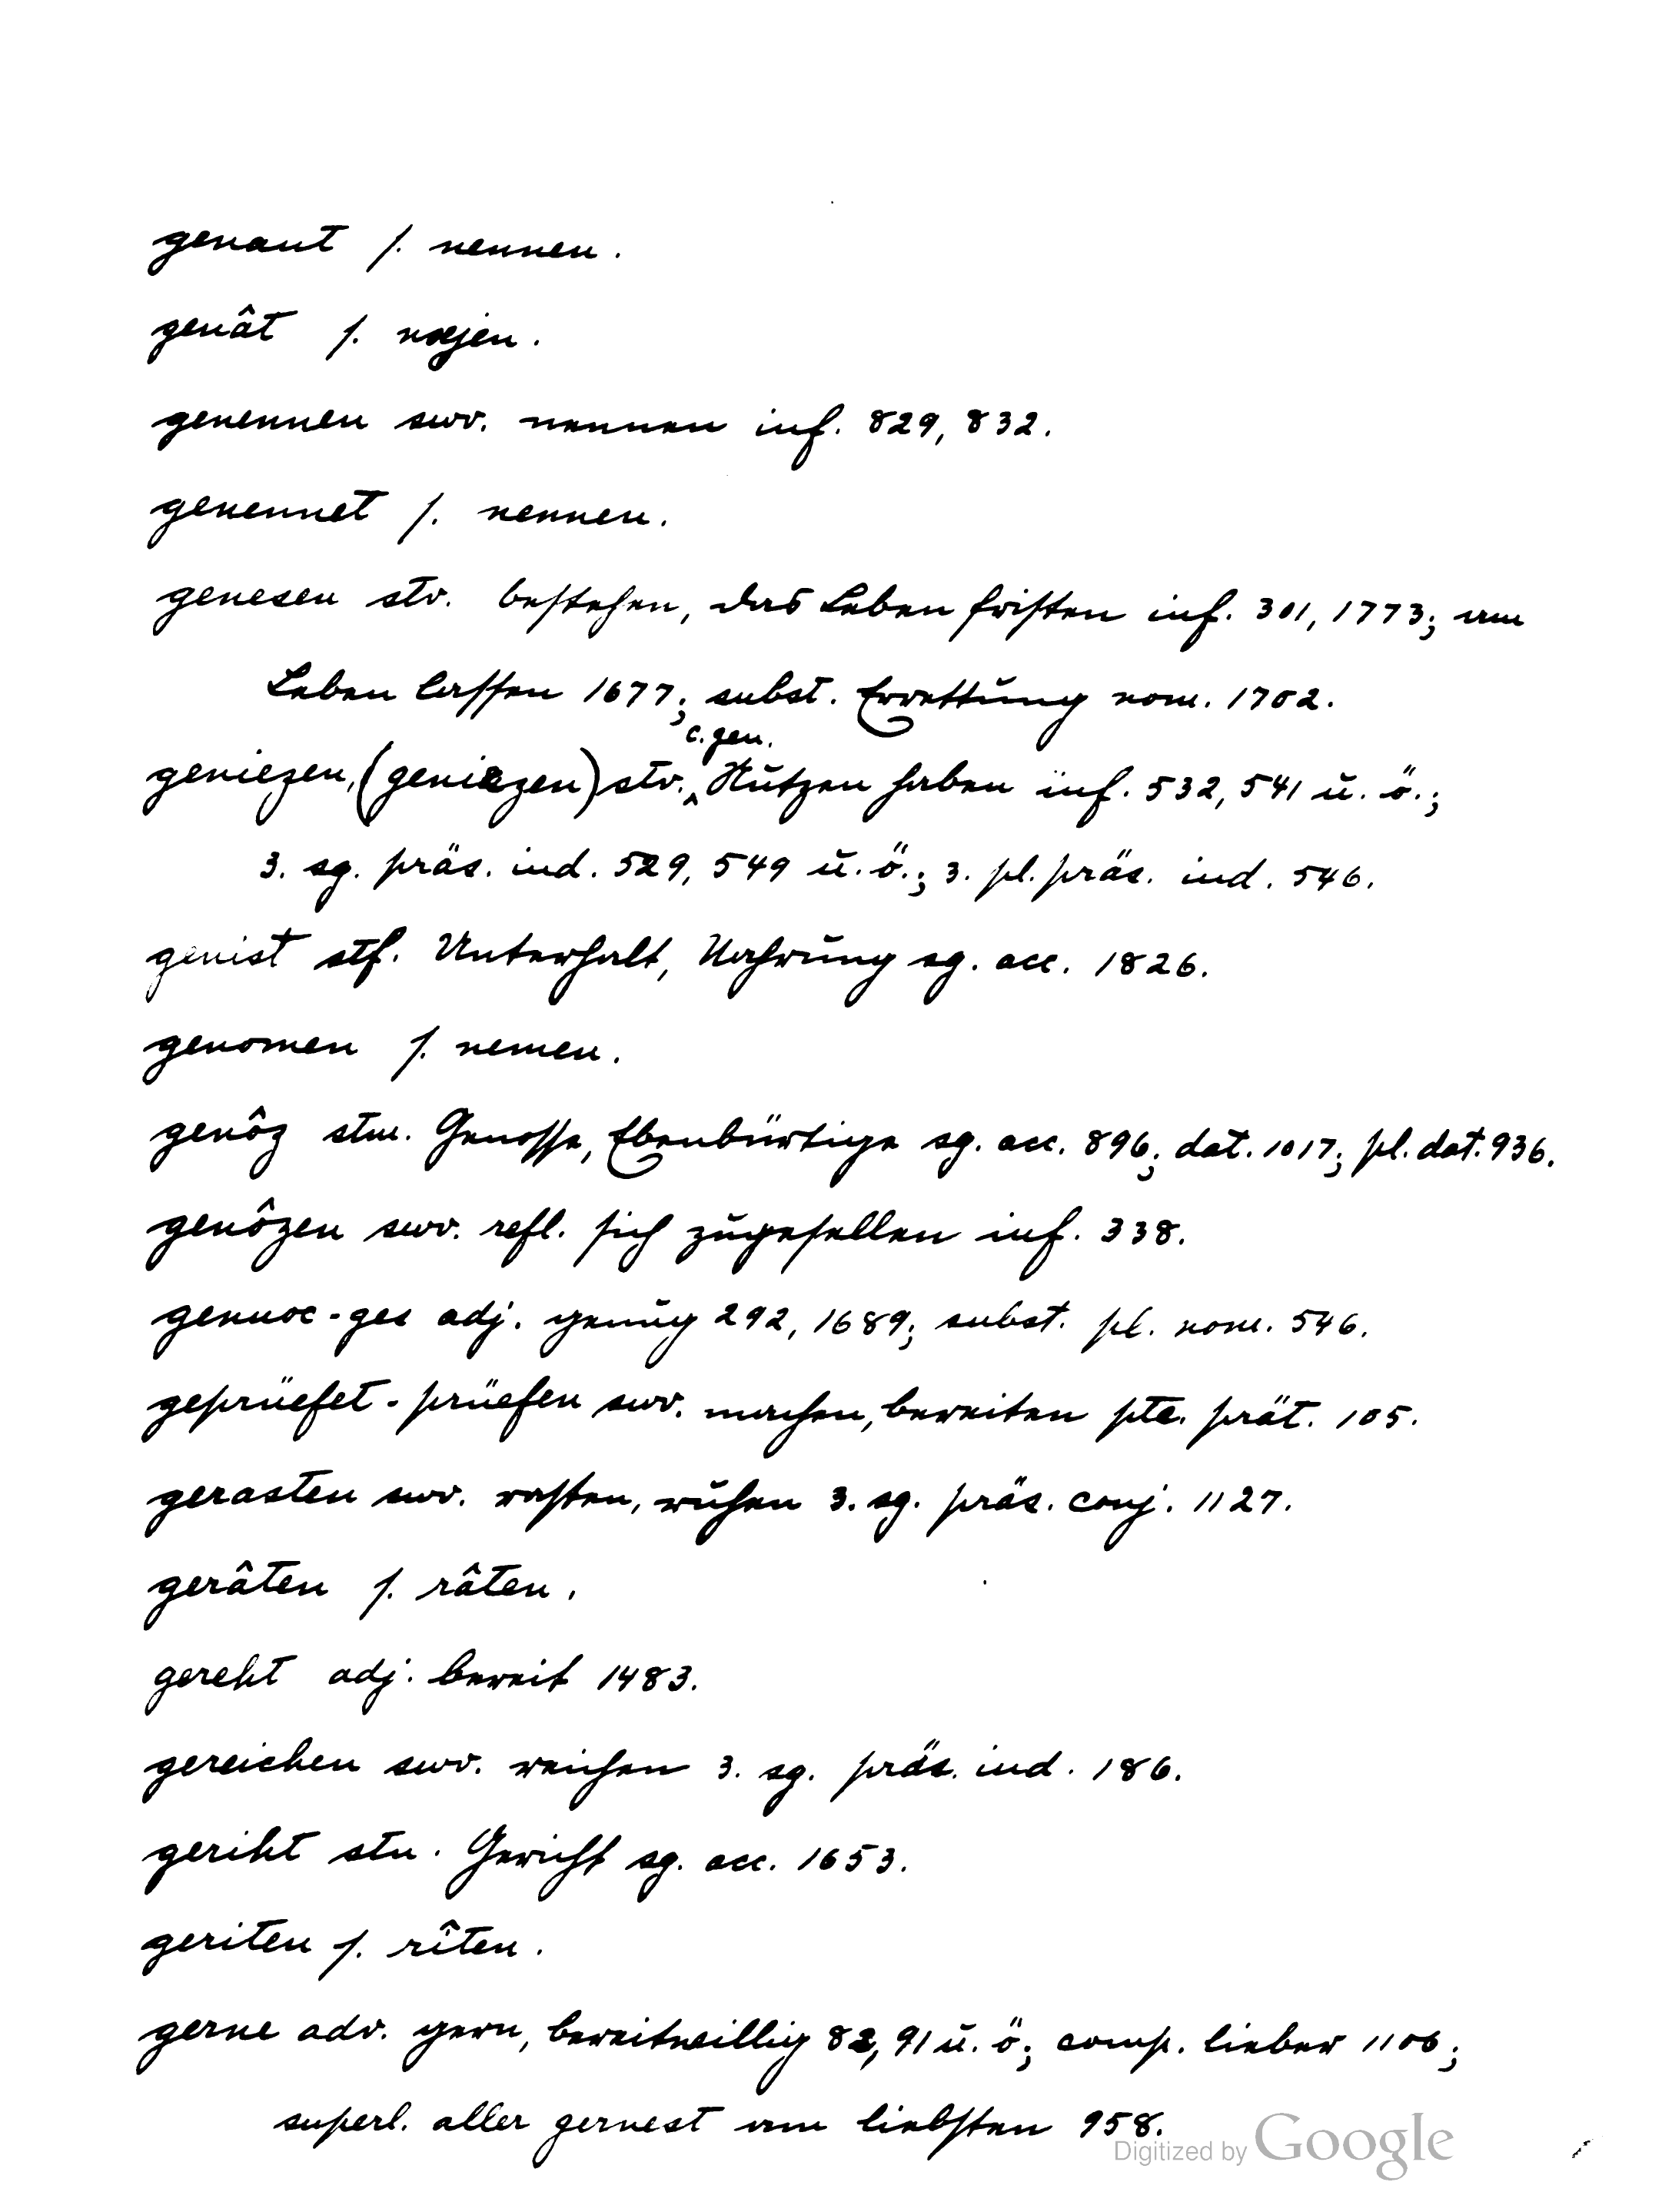 genant s. nennen.
genât s. næjen.
genennen swv. nennen inf. 829, 832.
genennet s. nennen.
genesen stv. bestehen, das Leben fristen inf. 301, 1773; am
Leben lassen 1677; subst. Errettung nom. 1702.
c. gen.
geniezen, (geniezen) stv. ^ Nutzen haben inf. 532, 541 u. ö.;
3. sg. präs. ind. 529, 549 u. ö.; 3. pl. präs. ind. 546.
genist stf. Unterhalt, Nahrung sg. acc. 1826.
genomen s. nemen.
genôz stm. Genosse, Ebenbürtige sg. acc. 896; dat. 1017; pl. dat. 936.
genôzen swv. refl. sich zugesellen inf. 338.
genuoc-ges adj. genug 292, 1689; subst. pl. nom. 546.
geprüefet - prüefen swv. machen, bereiten ptc. prät. 105.
gerasten swv. rasten, ruhen 3. sg. präs. conj. 1127.
gerâten s. râten.
gereht adj. bereit 1483.
gereichen swv. reichen 3. sg. präs. ind. 186.
geriht stn. Gericht sg. acc. 1653.
geriten s. rîten.
gerne adv. gern, bereitwillig 82, 91 u. ö; comp. lieber 1106;
superl. aller gernest am liebsten 958.
Digitized by Google